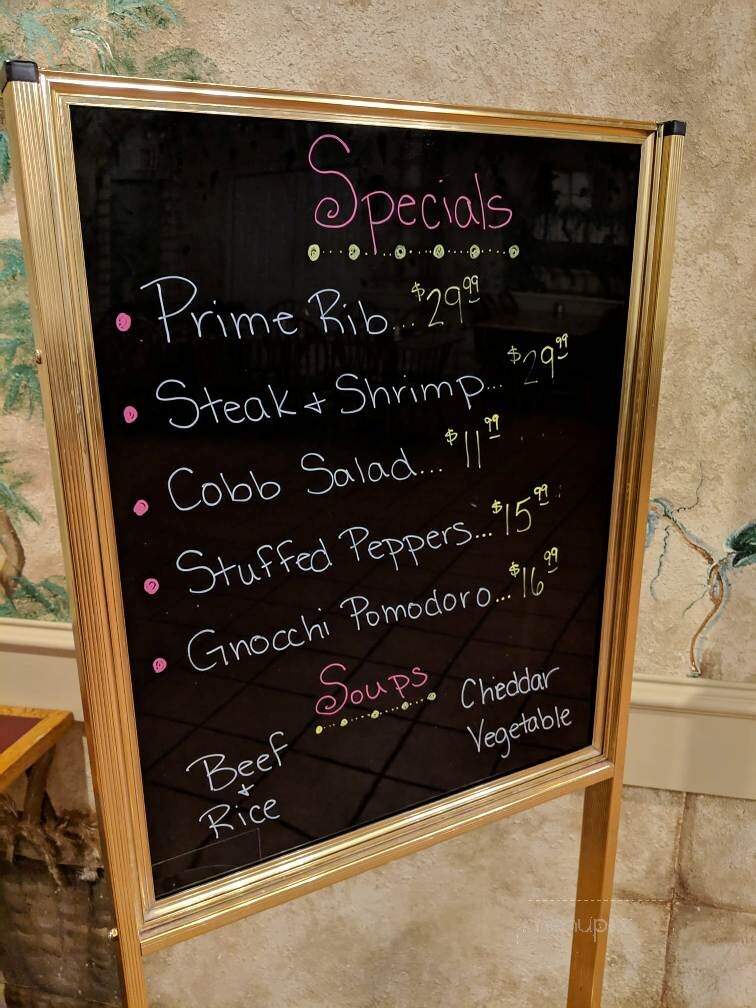 Specials
Prime Rib... $29.99
Steak + Shrimp... $29.99
Cobb Salad... $11.99
Stuffed Peppers... $15.99
Gnocchi Pomodoro... $16.99
Soups
Beef
+
Rice
Cheddar
Vegetable